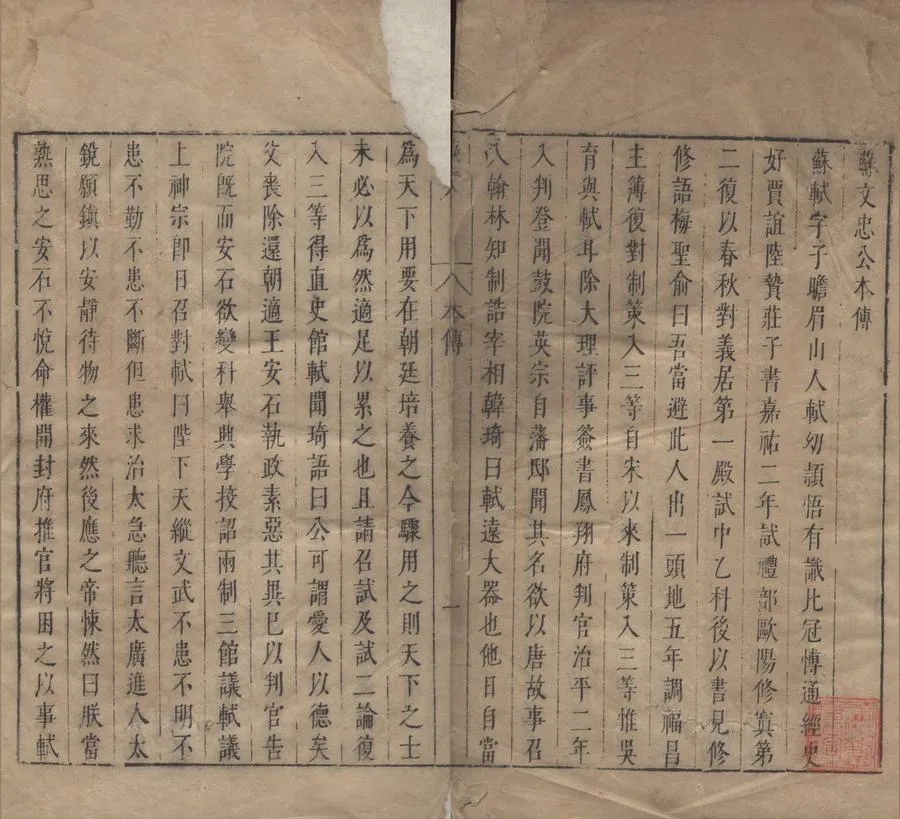 蘇文忠公本傳
蘇軾字子瞻眉山人軾幼頴悟有識比冠愽通經史
好賈誼陸贄莊子書嘉祐二年試禮部歐陽修寘第
二復以春秋對義居第一殿試中乙科後以書見修
修語梅聖俞曰吾當避此人出一頭地五年調福昌
主簿復對制策入三等自宋以來制策入三等惟吳
育與軾耳除大理評事簽書鳳翔府判官治平二年
入判登聞鼓院英宗自藩邸聞其名欲以唐故事召
入翰林知制誥宰相韓琦曰軾遠大器也他日自當
本傳 一
為天下用要在朝廷培養之今驟用之則天下之士
未必以爲然適足以累之也且請召試及試二論復
入三等得直史館軾聞琦語曰公可謂愛人以德矣
父喪除還朝適王安石執政素惡其異己以判官告
院既而安石欲變科舉興學校詔兩制三館議軾議
上神宗卽日召對軾曰陛下天縱文武不患不明不
患不勤不患不斷但患求治太急聽言太廣進人太
銳願鎮以安靜待物之來然後應之帝悚然曰朕當
熟思之安石不悅命權開封府推官將困之以事軾